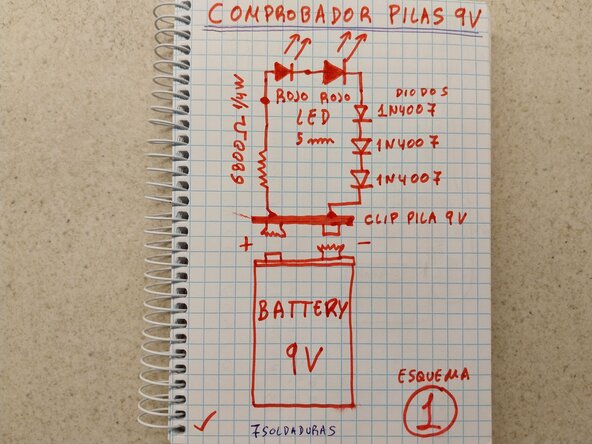 COMPROBADOR PILAS 9V
6800Ω 1/4W
ROJO ROJO
LED
5 mm
DIODOS
1N4007
1N4007
1N4007
CLIP PILA 9V
+
-
BATTERY
9V
ESQUEMA
1
7 SOLDADURAS